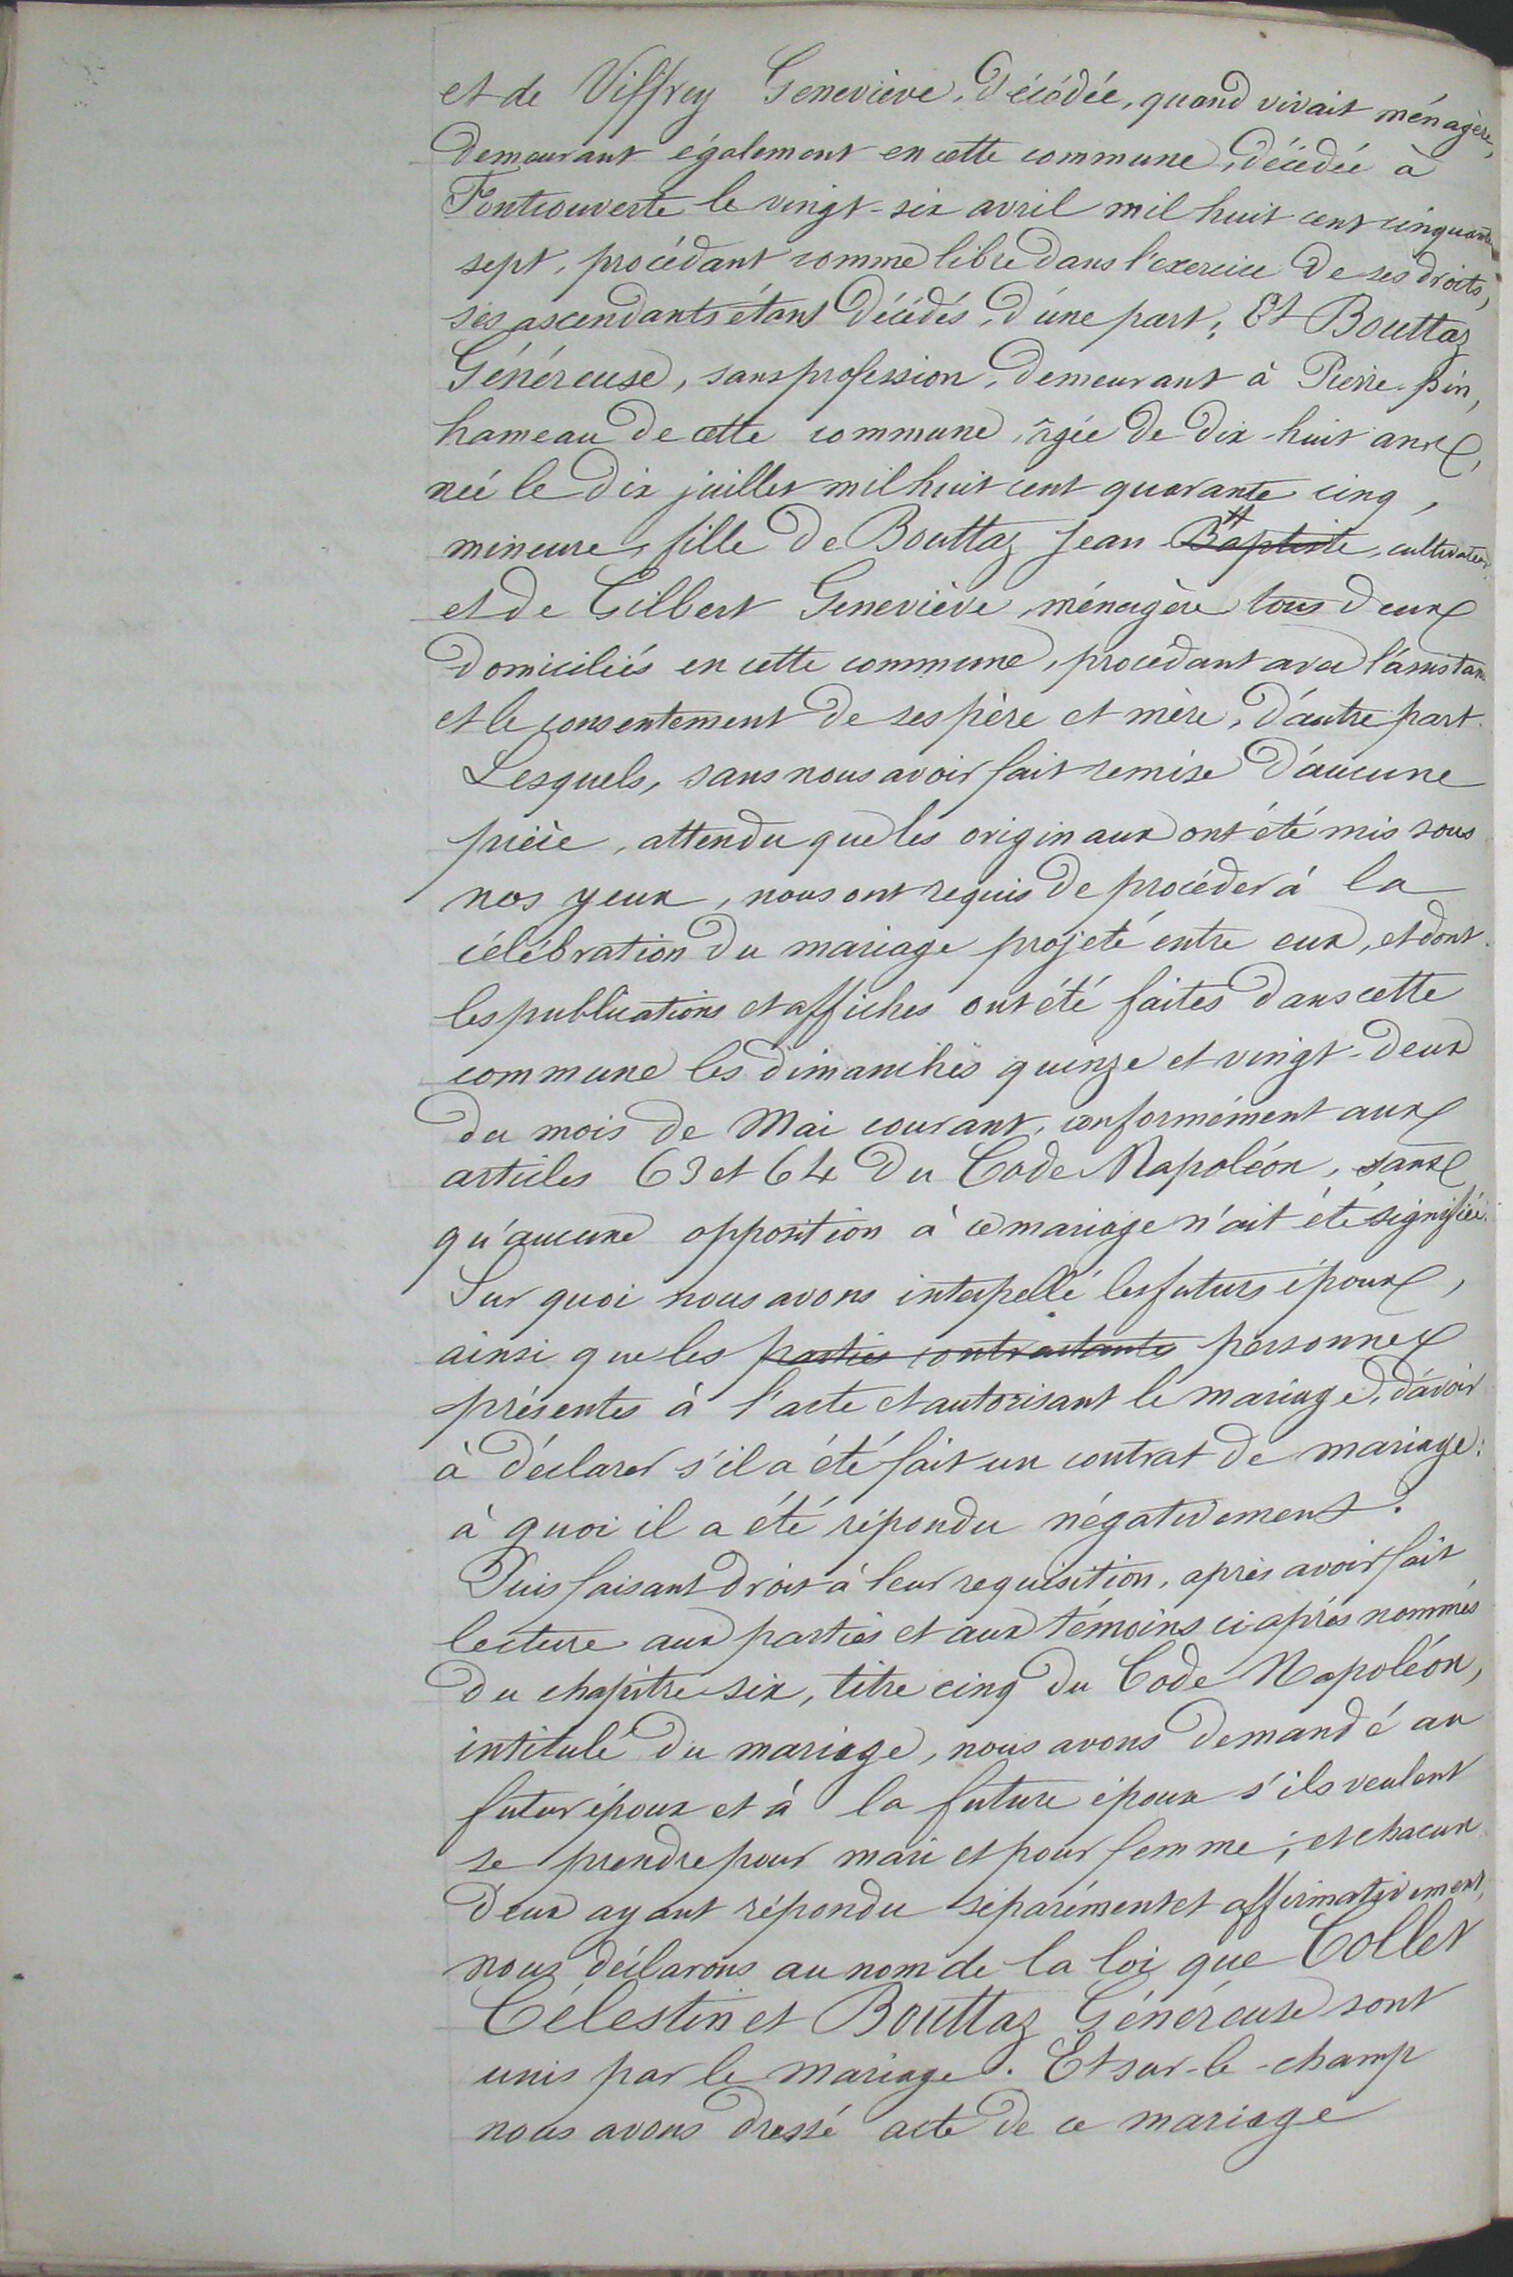 et de Viffrey Geneviève, décédée, quand vivait ménagère,
demeurant également en cette commune, décédée à
Fontcouverte le vingt-six avril mil huit cent cinquante
sept, procédant comme libre dans l'exercice de ses droits,
ses ascendants étant décédés, d'une part; Et Bouttaz
Généreuse, sans profession, demeurant à Pierre-pin,
hameau de cette commune, âgée de dix-huit ans,
née le dix juillet mil huit cent quarante cinq,
mineure, fille de Bouttaz Jean Baptiste, cultivateur,
et de Gilbert Geneviève, ménagère, tous deux
domiciliés en cette commune, procédant avec l'assistance
et le consentement de ses père et mère, d'autre part.
Lesquels, sans nous avoir fait remise d'aucune
pièce, attendu que les originaux ont été mis sous
nos yeux, nous ont requis de procéder à la
célébration du mariage projeté entre eux, et dont
les publications et affiches ont été faites dans cette
commune les dimanches quinze et vingt-deux
du mois de Mai courant, conformément aux
articles 63 et 64 du Code Napoléon, sans
qu'aucune opposition à ce mariage n'ait été signifiée.
Sur quoi nous avons interpellé les futurs époux,
ainsi que les parties contractantes personnes
présentes à l'acte et autorisant le mariage, d'avoir
à déclarer s'il a été fait un contrat de mariage:
à quoi il a été répondu négativement.
Puis faisant droit à leur requisition, après avoir fait
lecture aux parties et aux témoins ci-après nommés
du chapitre six, titre cinq du Code Napoléon,
intitulé du mariage, nous avons demandé au
futur époux et à la future époux s'ils veulent
se prendre pour mari et pour femme; et chacun
d'eux ayant répondu séparément et affirmativement,
nous déclarons au nom de la loi que Collet
Célestin et Bouttaz Généreuse sont
unis par le mariage. Et sur-le-champ
nous avons dressé acte de ce mariage